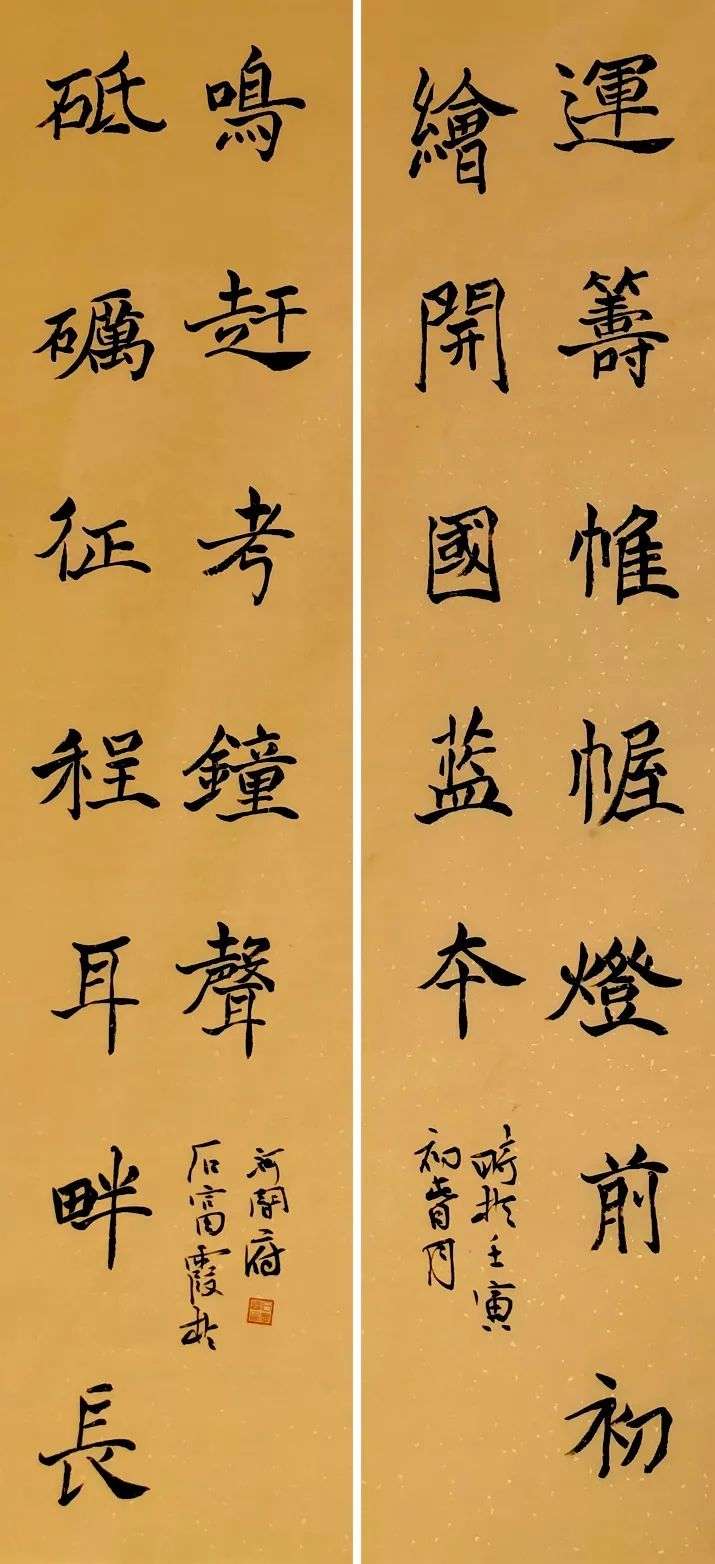 運籌帷幄燈前初
繪開國藍本
時於壬寅
初春月
砥礪征程耳畔長
鳴赶考鐘聲
石富霞於
河間府